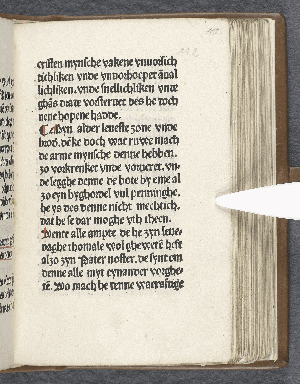 cristen mynsche vakene vnuorsich
tichliken vnde vnvorhopet
lichliken. vnde snellichliken vnde
dar vorstervet des he doch
nene hopene hadde.
Myn alder leueste zone vnde
wat ruwe mach
de arme mynsche denne hebben.
zo vorkrenket vnde
de legghe denne de bote by eme al
zo eyn byghordel vul penninghe.
he ys des denne nicht mechtich.
dat he se dar moghe vth theen.
Wente alle de he zyn leue
daghe wol ghewere heft
alzo zyn Pater noster. de synt em
denne alle myt eynander vorghe
tē. Wo mach he denne warrastige